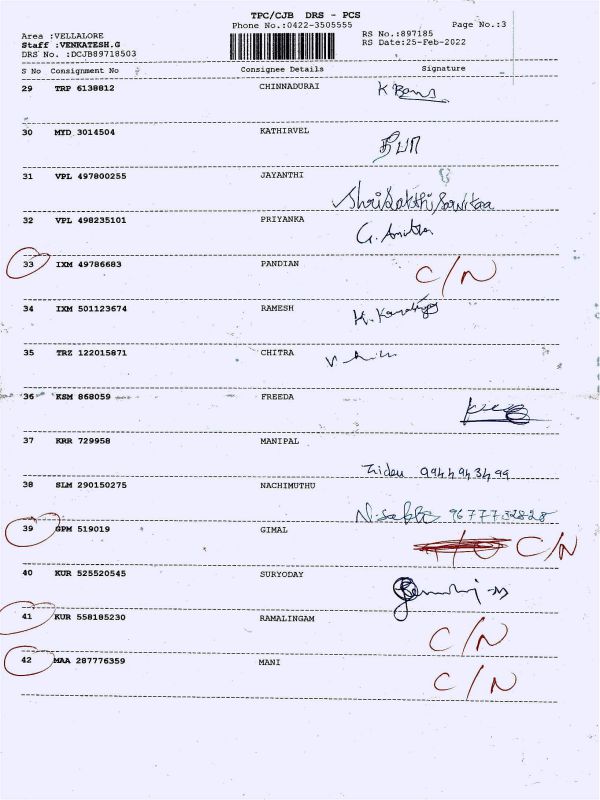 TPC/CJB DRS - PCS
Phone No.:0422-3505555 Page No.:3
Area :VELLALORE RS No.:897185
Staff :VENKATESH.G RS Date:25-Feb-2022
DRS No. :DCJB89718503
S No Consignment No Consignee Details Signature
29 TRP 6138812 CHINNADURAI
30 MYD 3014504 KATHIRVEL
31 VPL 497800255 JAYANTHI
32 VPL 498235101 PRIYANKA
33 IXM 49786683 PANDIAN C/N
34 IXM 501123674 RAMESH
35 TRZ 122015871 CHITRA
36 KSM 868059 FREEDA
37 KRR 729958 MANIPAL
9944943499
38 SLM 290150275 NACHIMUTHU
9677732828
39 GPM 519019 GIMAL C/N
40 KUR 525520545 SURYODAY
41 KUR 558185230 RAMALINGAM C/N
42 MAA 287776359 MANI C/N